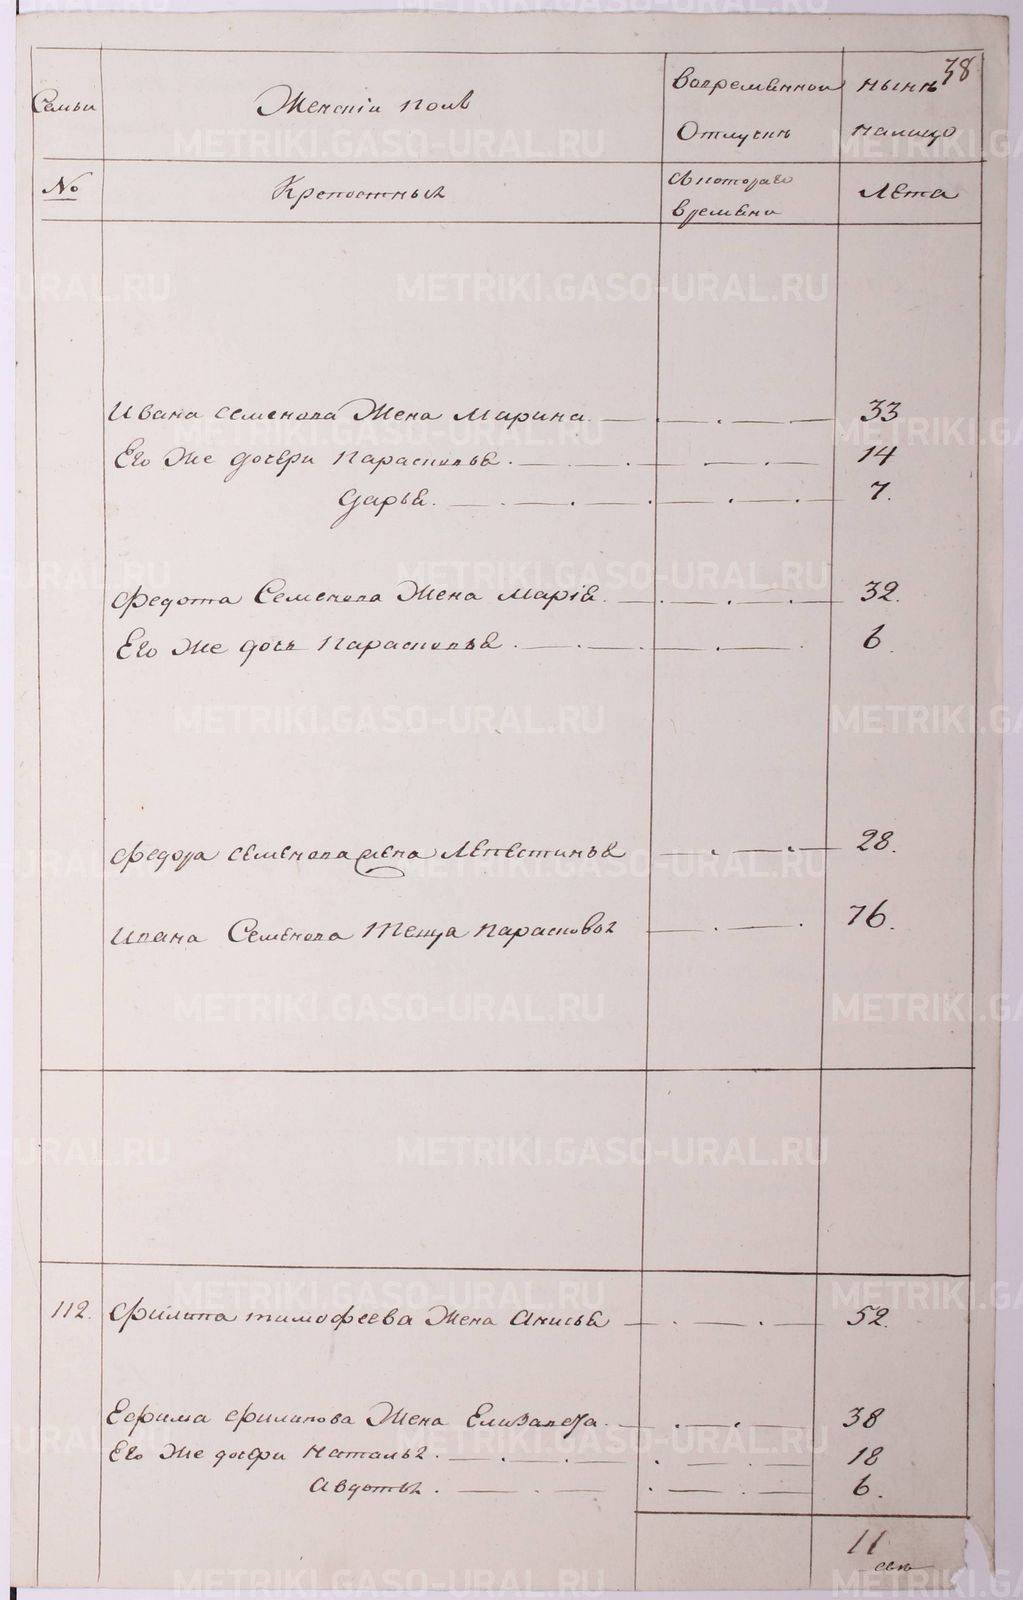 38
Семьи Женскій полъ Вовременной ныне
Отлучке налицо
№ Крепостныя Скотораго Лета
времени
Ивана Семенова Жена Марина 33
Его Же дочери Парасковья 14
Дарья 7.
Федота Семенова Жена Марія 32.
Его Же дочь Парасковья 6.
Федора Семенова Жена Лепестинья 28.
Ивана Семенова Теща Парасковья 76.
112. Филипа тимофеева Жена Анисья 52.
Ефима филипова Жена Елизавета 38
Его Же дочери Наталья 18
Авдотья 6.
11
METRIKI.GASO-URAL.RU